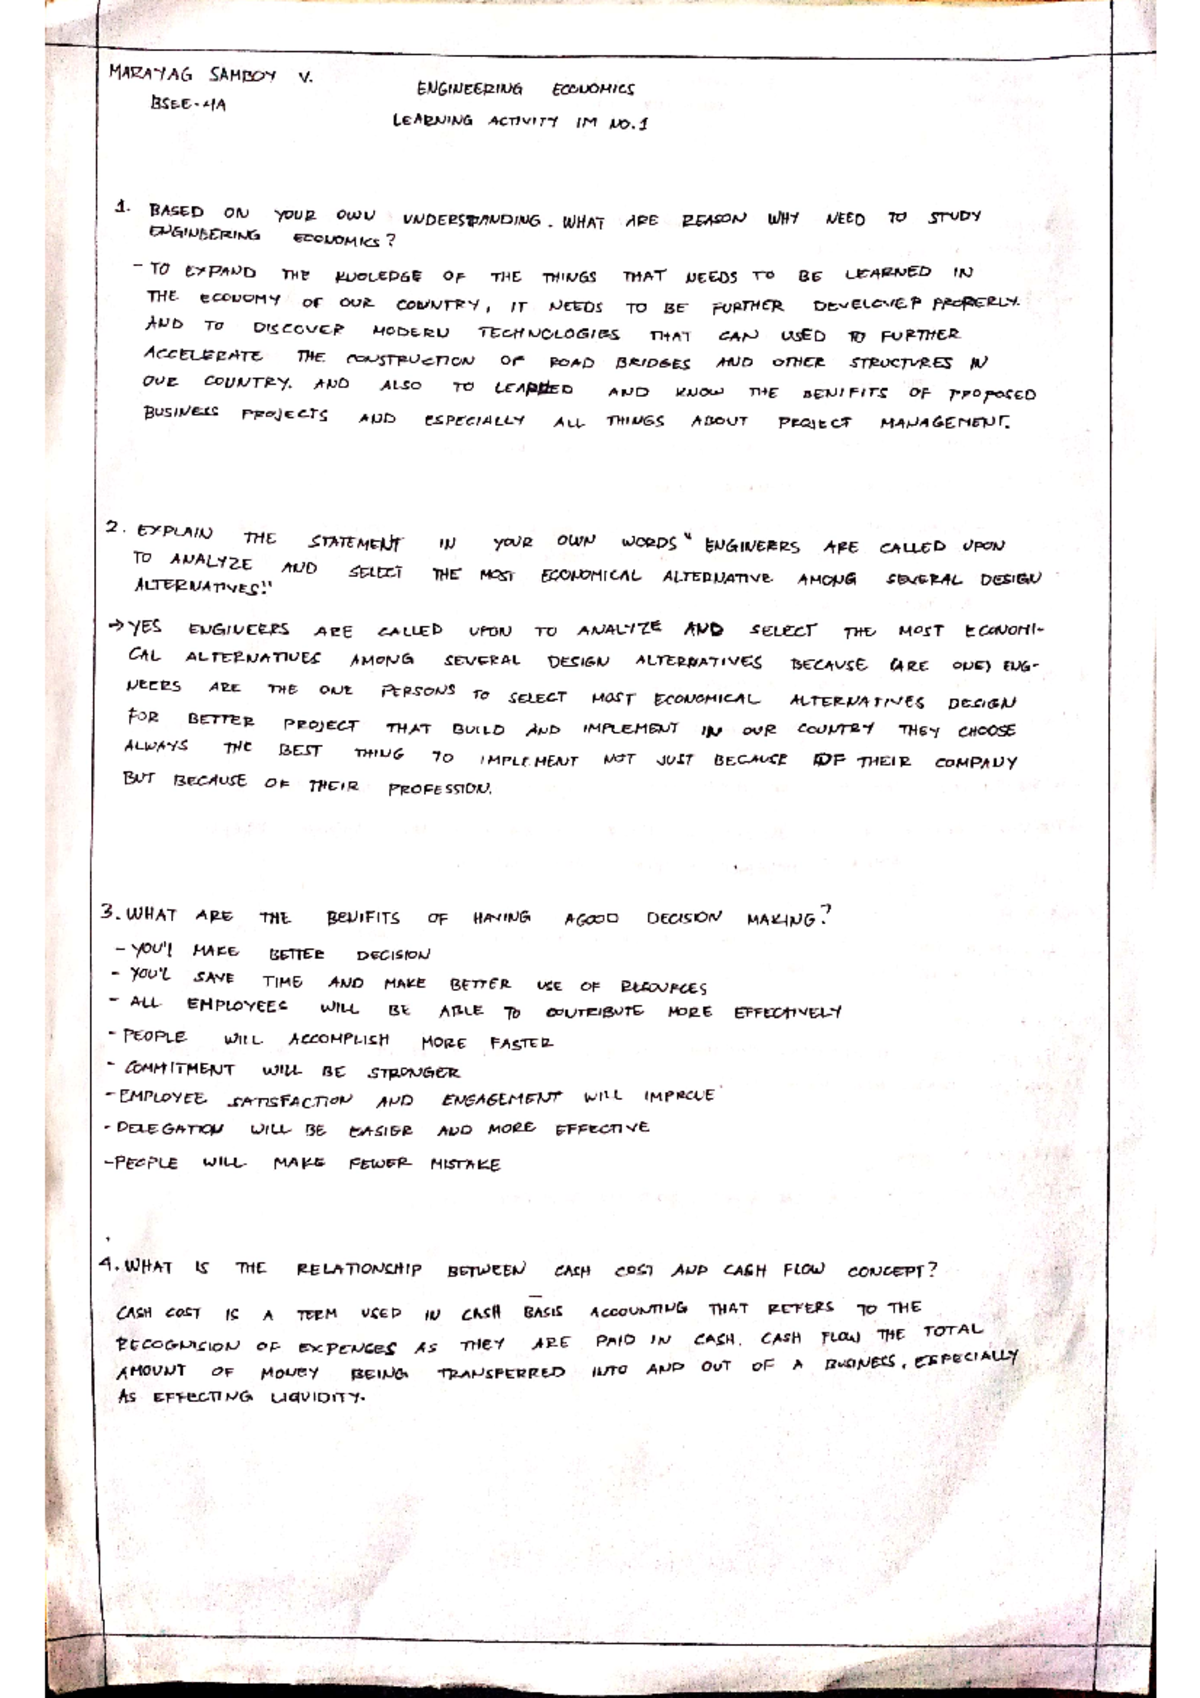 MARAYAG SAMBOY V.
BSEE-4A
ENGINEERING ECONOMICS
LEARNING ACTIVITY IM NO.1
1. BASED ON YOUR OWN UNDERSTANDING. WHAT ARE REASON WHY NEED TO STUDY
ENGINEERING ECONOMICS?
- TO EXPAND THE KNOLEDGE OF THE THINGS THAT NEEDS TO BE LEARNED IN
THE ECONOMY OF OUR COUNTRY, IT NEEDS TO BE FURTHER DEVELOVEP PROPERLY.
AND TO DISCOVER MODERN TECHNOLOGIES THAT CAN USED TO FURTHER
ACCELERATE THE CONSTRUCTION OF ROAD BRIDGES AND OTHER STRUCTURES IN
OUR COUNTRY. AND ALSO TO LEARNED AND KNOW THE BENIFITS OF PROPOSED
BUSINESS PROJECTS AND ESPECIALLY ALL THINGS ABOUT PROJECT MANAGEMENT.
2. EXPLAIN THE STATEMENT IN YOUR OWN WORDS " ENGINEERS ARE CALLED UPON
TO ANALYZE AND SELECT THE MOST ECONOMICAL ALTERNATIVE AMONG SEVERAL DESIGN
ALTERNATIVES."
→ YES ENGINEERS ARE CALLED UPON TO ANALYZE AND SELECT THE MOST ECONOMI-
CAL ALTERNATIVES AMONG SEVERAL DESIGN ALTERNATIVES BECAUSE (ARE ONE) ENG-
NEERS ARE THE ONE PERSONS TO SELECT MOST ECONOMICAL ALTERNATIVES DESIGN
FOR BETTER PROJECT THAT BUILD AND IMPLEMENT IN OUR COUNTRY THEY CHOOSE
ALWAYS THE BEST THING TO IMPLEMENT NOT JUST BECAUSE OF THEIR COMPANY
BUT BECAUSE OF THEIR PROFESSION.
3. WHAT ARE THE BENIFITS OF HAVING AGOOD DECISION MAKING?
- YOU'l MAKE BETTER DECISION
- YOU'L SAVE TIME AND MAKE BETTER USE OF RESOURCES
- ALL EMPLOYEES WILL BE ABLE TO CONTRIBUTE MORE EFFECTIVELY
- PEOPLE WILL ACCOMPLISH MORE FASTER
- COMMITMENT WILL BE STRONGER
- EMPLOYEE SATISFACTION AND ENGAGEMENT WILL IMPROVE
- DELEGATION WILL BE EASIER AND MORE EFFECTIVE
- PEOPLE WILL MAKE FEWER MISTAKE
4. WHAT IS THE RELATIONSHIP BETWEEN CASH COST AND CASH FLOW CONCEPT?
CASH COST IS A TERM USED IN CASH BASIS ACCOUNTING THAT REFERS TO THE
RECOGNISION OF EXPENCES AS THEY ARE PAID IN CASH. CASH FLOW THE TOTAL
AMOUNT OF MONEY BEING TRANSFERRED INTO AND OUT OF A BUSINESS, ESPECIALLY
AS EFFECTING LIQUIDITY.